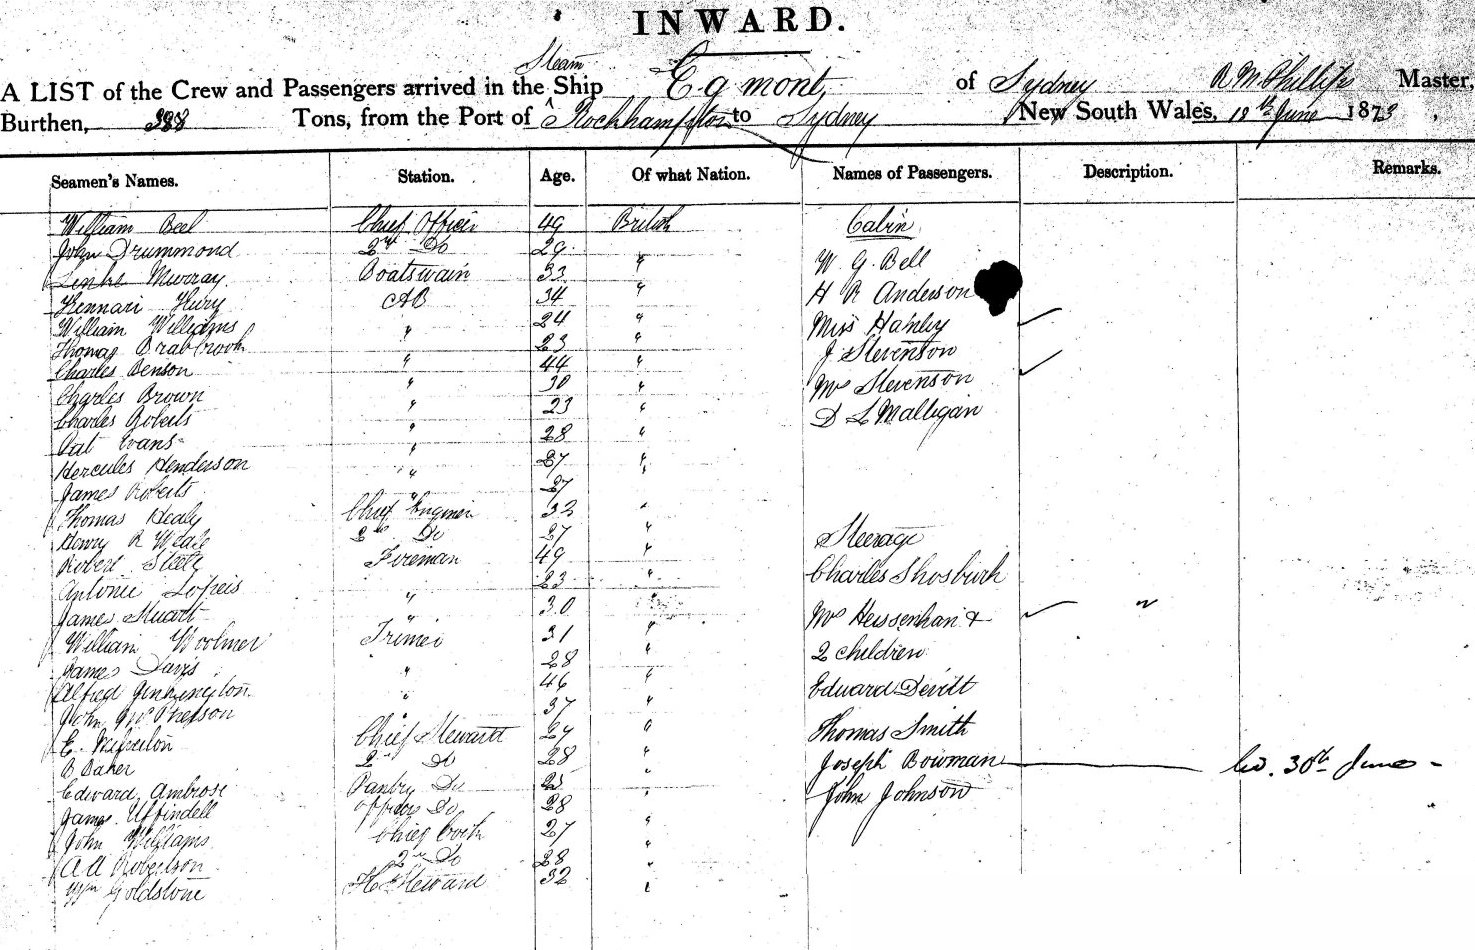 INWARD.
Steam
A LIST of the Crew and Passengers arrived in the Ship Egmont of Sydney R M Phillips Master,
Burthen, 388 Tons, from the Port of Rockhampton to Sydney New South Wales, 18th June 1873,
Seamen's Names. Station. Age. Of what Nation. Names of Passengers. Description. Remarks.
William Bell Chief Officer 49 British Cabin
John Drummond 2nd Do 29 "
Murray Boatswain 33 " W G Bell
Hury AB 34 " H R Anderson
William Williams " 24 " Miss Hanley
Thomas Brabrook 23 " J Stevenson
Charles Benson " 44 "
Charles Brown " 30 " Mrs Stevenson
Charles Roberts " 23 " D L Malligan
Pat Evans " 28 "
Hercules Henderson " 27 "
James Roberts " 27
Thomas Healy Chief Engineer 32 "
Henry R 2nd Do 27 " Steerage
Robert Steele Fireman 49 "
Antonie 23 " Charles
James Stuart " 30 " Mrs & "
William Woolmer Trimer 31 " 2 children
James Davis " 28 "
Alfred " 46 " Edward Devitt
John McPherson " 37 "
E. Chief Steward 29 " Thomas Smith
B Baker 2nd Do 28 " Joseph Bowman 30th June -
Edward Ambrose Pantry Do 25 " John Johnson
James Uffindell Officers Do 28 "
John Williams Chief Cook 27 "
A A Robertson 2nd Do 28 "
Wm Goldstone Steward 32 "